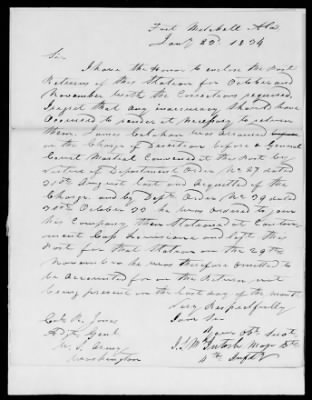 Fort Mitchell Ala
Jany 23d 1834
Sir
I have the Honor to enclose the Post
Returns of this Station for October and
November with the Corrections required.
I regret that any inaccuracy should have
occurred to render it necessary to return
them. James Calahan was arraigned
on the Charge of Desertion before a General
Court Martial Convened at this Post by
virtue of Department Order No 27 dated
31st August last and acquitted of the
Charge. and by Dept. Order No 39 dated
October 22 he was ordered to join
his Company then Stationed at Canton-
ment and left this
Post for that Station on the 29th
November he was therefore omitted to
be accounted for on the Return not
being present on the last day of the month
Very Respectfully
I am Sir
Your Obt Servt
J. S. McIntosh Majr Bt
4th Infty
Col R. Jones
Adjt. Genl.
U. S. Army
Washington